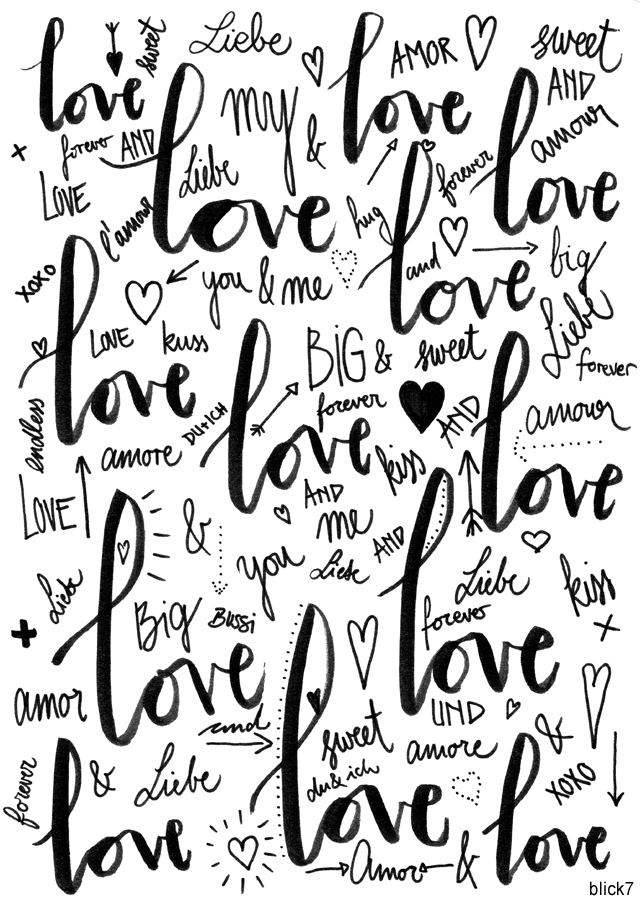 love
sweet
Liebe
AMOR
sweet
AND
my
&
love
forever AND
LOVE
Liebe
love
amour
love
forever
hug
l'amour
XOXO
you & me
and
love
big
LOVE
kuss
love
BIG & sweet
Liebe
forever
endless
amore
DU+ICH
forever
love
AND
amour
kiss
love
LOVE
&
AND
me
you
Liebe
AND
Liebe
Liebe
kiss
BIG
Bussi
forever
love
love
amor
und
sweet
UND
amore
&
forever
& Liebe
du & ich
XOXO
love
love
love
Amor
&
blick7